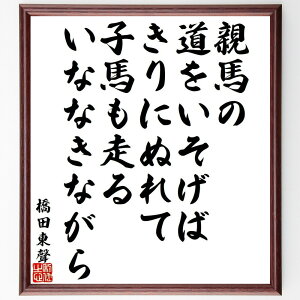 親馬の
道をいそげば
きりにぬれて
子馬も走る
いななきながら
橋田東聲